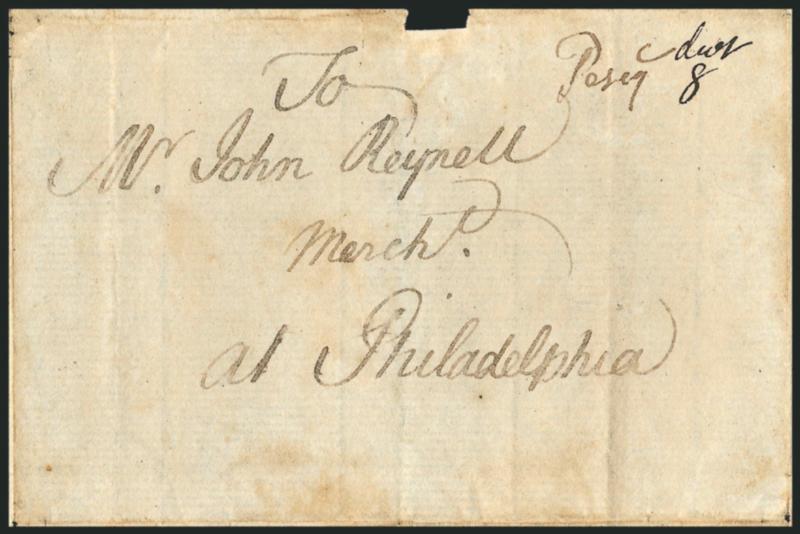 To
Mr. John Reynell
Mercht.
at Philadelphia
dwt
8